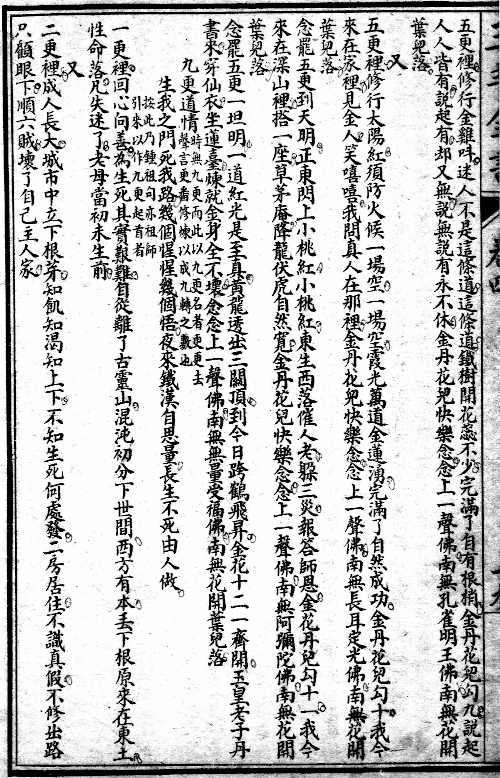 五更裡修行金雞呌迷人不是這條道這條道鐵樹開花蕊不少完滿了自有根稍金丹花兒勾九說起
人人皆有說起有却又無說無說有永不休金丹花兒快樂念念上一聲佛南無孔雀明王佛南無花開
葉兒落
又
五更裡修行太陽紅須防火候一場空一場空霞光萬道金蓮湧完滿了自然成功金丹花兒勾十我今
來在家裡見金人笑嘻嘻我問真人在那裡金丹花兒快樂念念上一聲佛南無長耳定光佛南無花開
葉兒落
念罷五更到天明正東閃上小桃紅小桃紅東生西落催人老躲三災報答師恩金花丹兒勾十一我今
來在深山裡搭一座草茅庵降龍伏虎自然寬金丹花兒快樂念念上一聲佛南無阿彌陀佛南無花開
葉兒落
念罷五更一旦明一道紅光是至真黃龍透出三關頂到今日跨鶴飛昇金花十二一齊開玉皇老子丹
書來穿仙衣坐蓮臺煉就金身全不壞念念上一聲佛南無無量受福佛南無花開葉兒落
九更道情時無九更而此以九更名者更更去
聲言更番修煉以成九轉之數也
生我之門死我路幾個惺惺幾個悟夜來鐵漢自思量長生不死由人做
按此乃鍾祖句亦祖師
引來以作九更起首者
一更裡回心向善為生死其實艱難自從離了古靈山混沌初分下世間西方有本丟下根原來在東土
性命落凡失迷了老母當初未生前
又
二更裡成人長大城市中立下根芽知飢知渴知上下不知生死何處發二房居住不識真假不修出路
只顧眼下順六賊壞了自己主人家